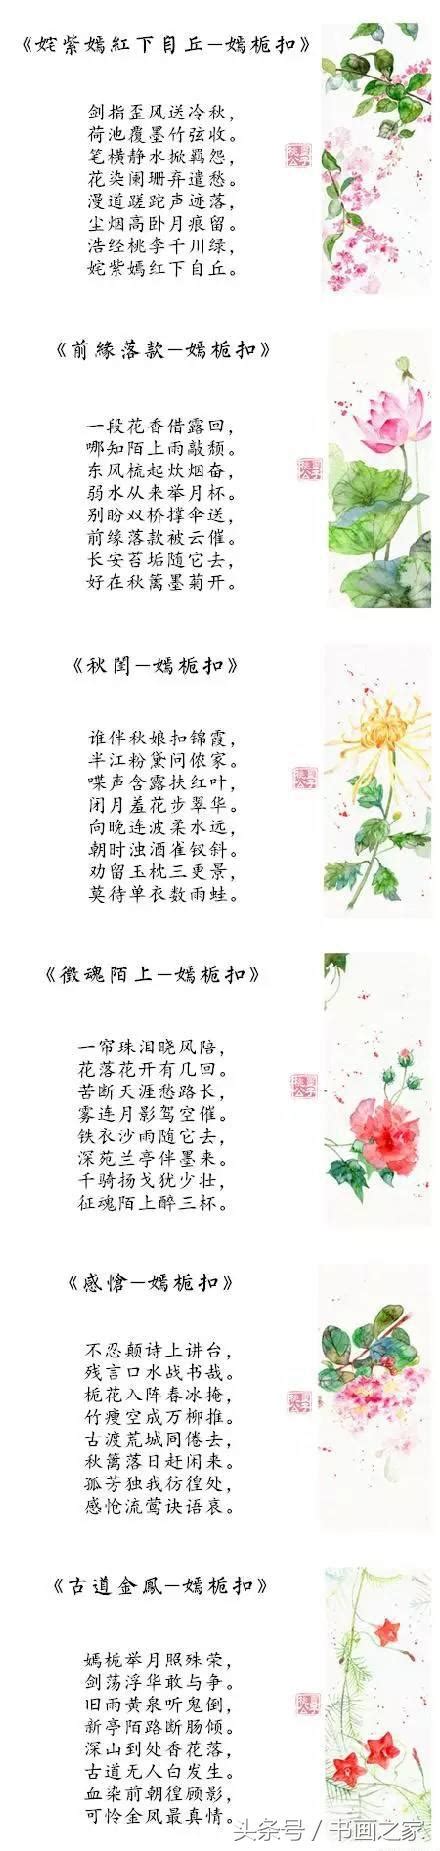 《姹紫嫣紅下自丘—嫣栀扣》
剑指歪风送冷秋，
荷池覆墨竹弦收。
笔横静水掀羁怨，
花染阑珊弃遣愁。
漫道蹉跎声迹落，
尘烟高卧月痕留。
浩经桃李千川绿，
姹紫嫣红下自丘。
《前緣落款—嫣栀扣》
一段花香借露回，
哪知陌上雨敲颓。
东风梳起炊烟奋，
弱水从来举月杯。
别盼双桥撑伞送，
前缘落款被云催。
长安苔垢随它去，
好在秋篱墨菊开。
《秋閨—嫣栀扣》
谁伴秋娘扣锦霞，
半江粉黛问侬家。
喋声含露扶红叶，
闭月羞花步翠华。
向晚连波柔水远，
朝时浊酒雀钗斜。
劝留玉枕三更景，
莫待单衣数雨蛙。
《徵魂陌上—嫣栀扣》
一帘珠泪晓风陪，
花落花开有几回。
苦断天涯愁路长，
雾连月影驾空催。
铁衣沙雨随它去，
深苑兰亭伴墨来。
千骑扬戈犹少壮，
征魂陌上醉三杯。
《感愴—嫣栀扣》
不忍颠诗上讲台，
残言口水战书哉。
栀花入阵春冰掩，
竹瘦空成万柳推。
古渡荒城同倦去，
秋篱落日赶闲来。
孤芳独我彷徨处，
感怆流莺诀语哀。
《古道金鳳—嫣栀扣》
嫣栀举月照殊荣，
剑荡浮华敢与争。
旧雨黄泉听鬼倒，
新亭陌路断肠倾。
深山到处香花落，
古道无人白发生。
血染前朝徨顾影，
可怜金凤最真情。
头条号 / 书画之家